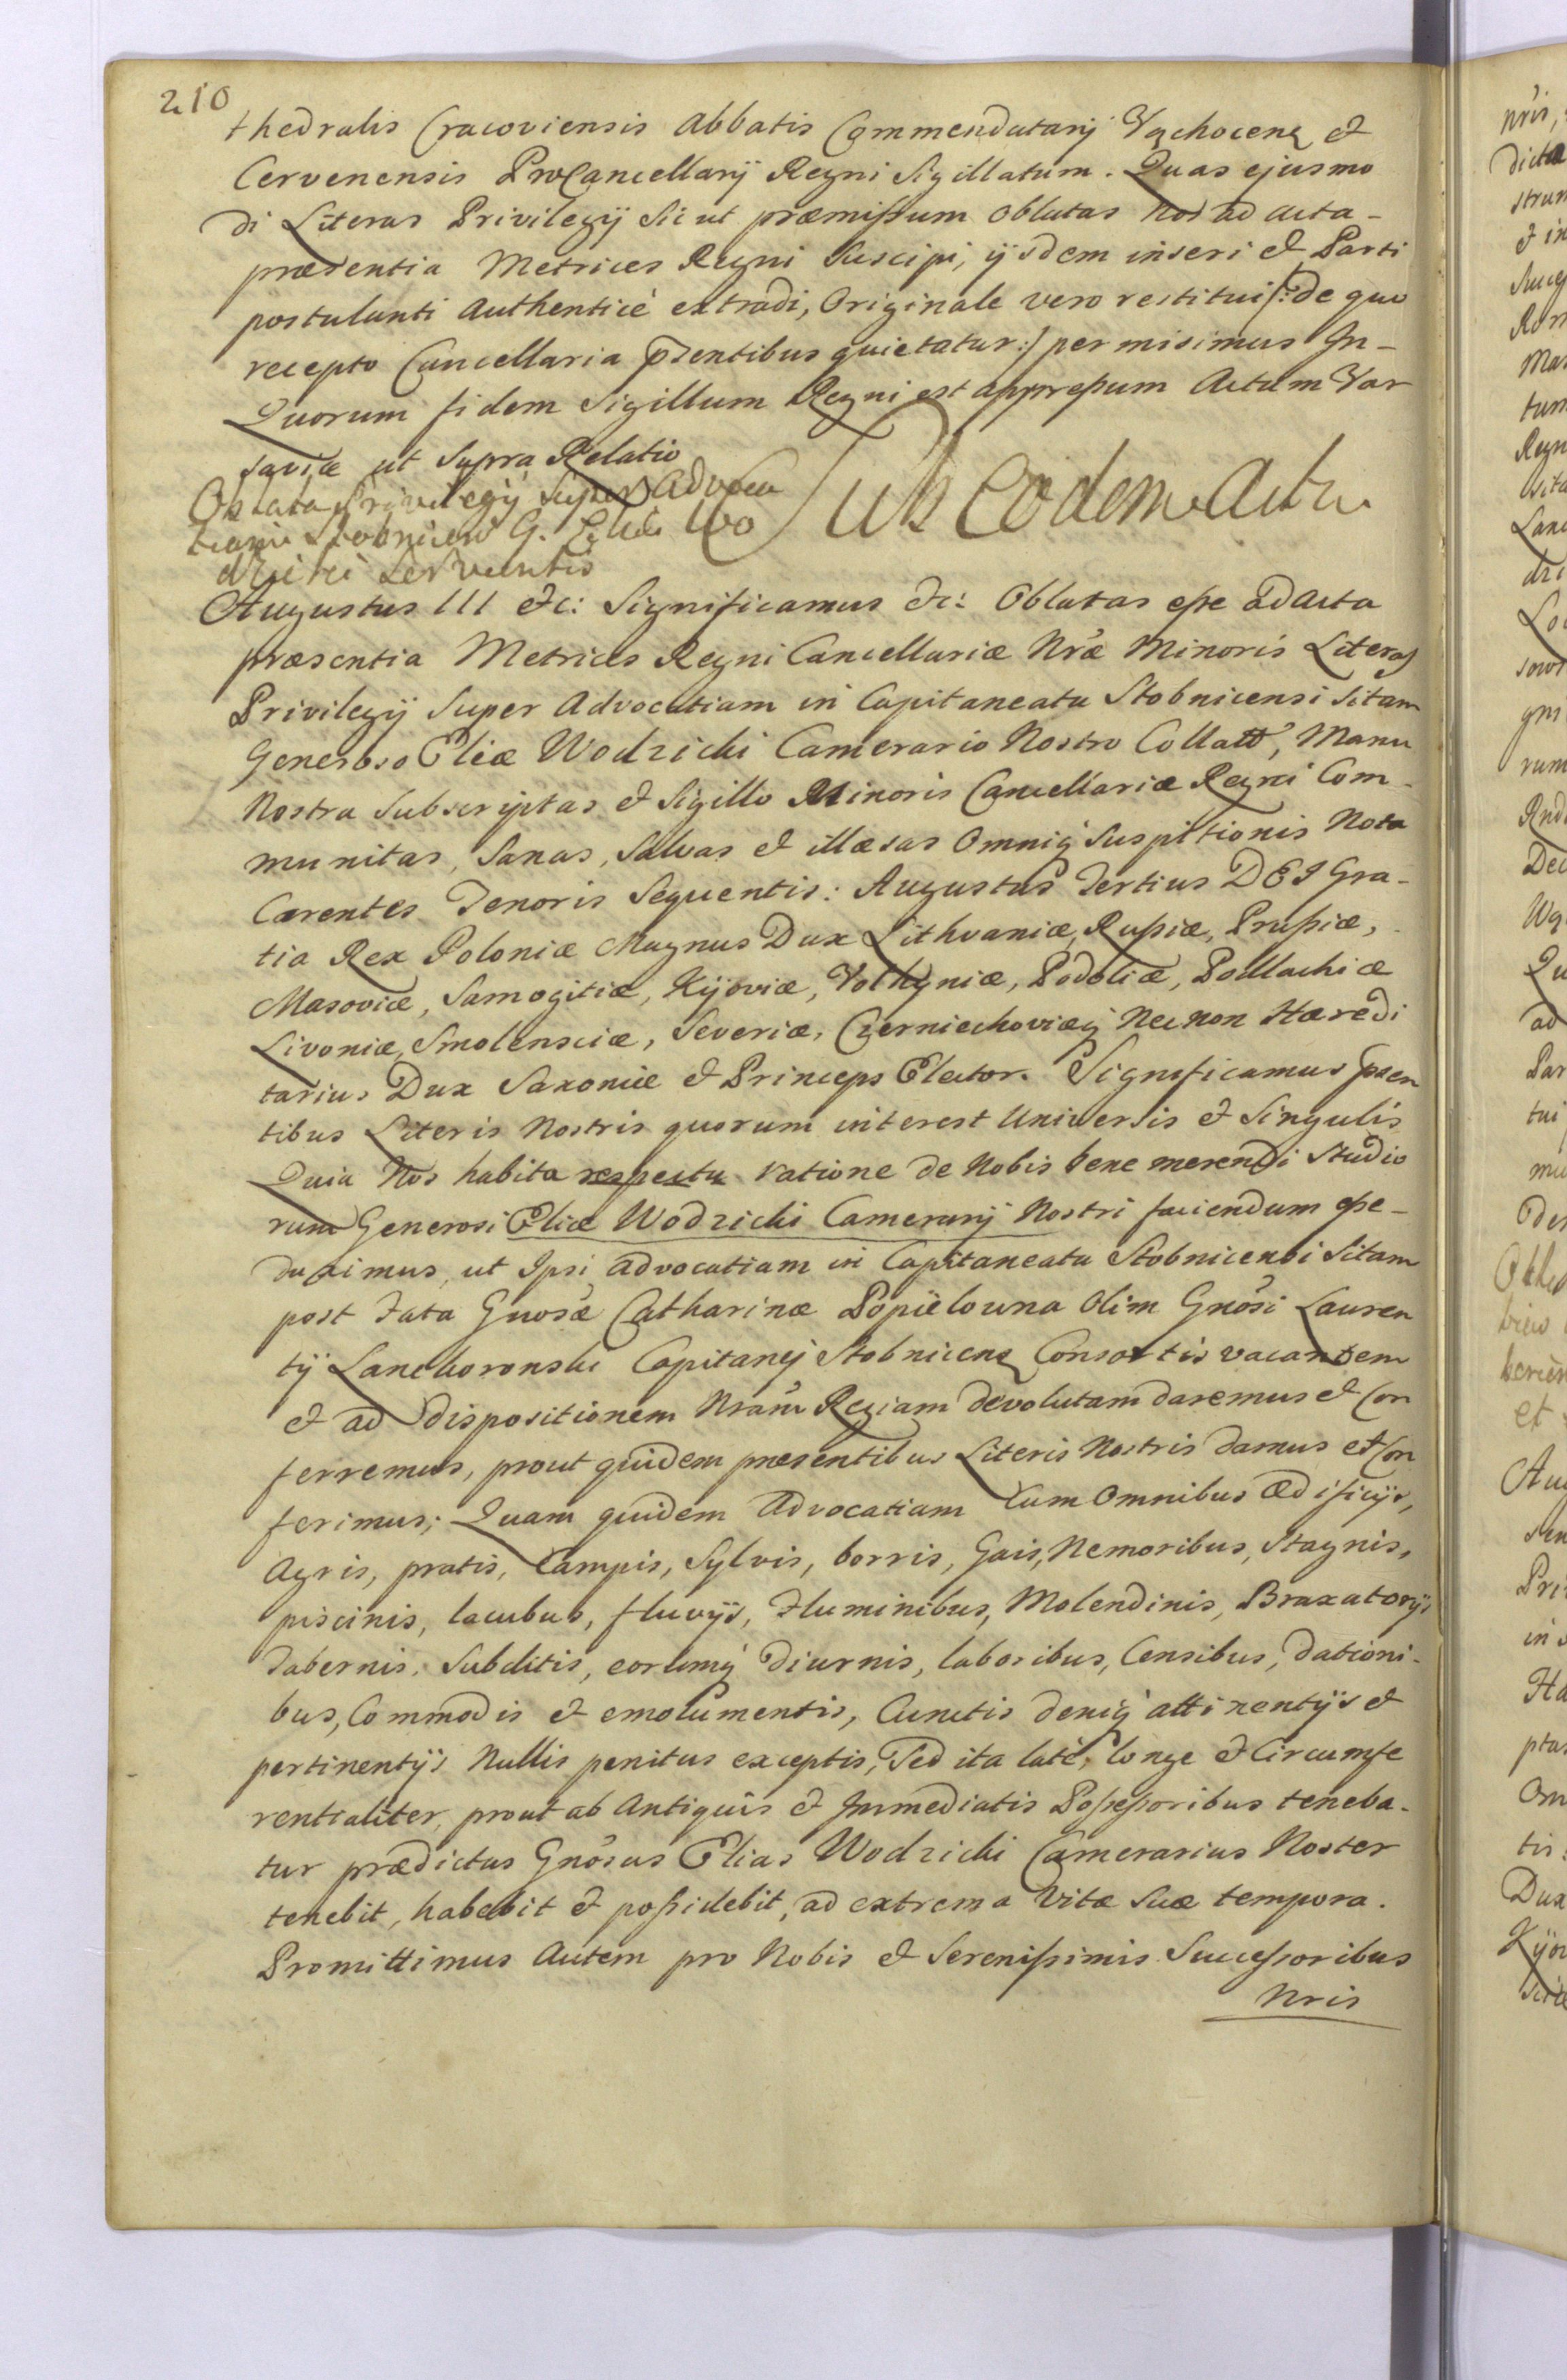 210
thedralis Cracoviensis Abbatis Commendatarij Vąchocenş et
Cervenensis ProCancellarij Regni Sigillatum. Quas ejusmo
di Literas Privilegij Sic ut præmissum oblatas Nos ad acta-
præsentia Metrices Regni Suscipi, ijsdem inseri et Parti
postulanti Authenticè extradi, Originale vero restitui /: de quo
recepto Cancellaria pñsentibus quietatur :/ permisimus In-
Quorum fidem Sigillum Regni est appressum Actum Var
saviæ ut Supra Relatio
Oblata Privilegij Super Advoca
tiam Stobnicen G. Eliæ Wo
dzicki Servientis
Sub Eodem Actu
Augustus III etc: Significamus etc: Oblatas esse ad Acta
præsentia Metrices Regni Cancellariæ Nræ Minoris Literas
Privilegij Super Advocatiam in Capitaneatu Stobnicensi Sitam
Generoso Eliæ Wodzicki Camerario Nostro Collatt, Manu
Nostra Subscriptas et Sigillo Minoris Cancellariæ Regni Com-
munitas, Sanas, Salvas et illæsas Omniq́ Suspitionis Nota
Carentes Tenoris Sequentis: Augustus Tertius DEI Gra-
tia Rex Poloniæ Magnus Dux Lithvaniæ, Russiæ, Prussiæ,
Masoviæ, Samogitiæ, Kijoviæ, Volhyniæ, Podoliæ, Podlachiæ
Livoniæ, Smolensciæ, Severiæ, Czerniechoviæq́ Necnon Hæredi
tarius Dux Saxoniæ et Princeps Elector. Significamus præsen
tibus Literis Nostris quorum interest Universis et Singulis
Quia Nos habita respectu ratione de Nobis bene merendi Studio
rum Generosi Eliæ Wodzicki Camerarij Nostri faciendum esse-
duximus, ut Ipsi advocatiam in Capitaneatu Stobnicensi Sitam
post Fata Gnosæ Catharinæ Popielowna Olim Gnosi Lauren
tij Lanckoronski Capitanej Stobnicenş Consortis vacantem
et ad dispositionem Nram Regiam devolutam daremus et Con
ferremus, prout quidem præsentibus Literis Nostris damus et Con
ferimus; Quam quidem Advocatiam Cum Omnibus Ædificijs,
Agris, pratis, Campis, Sylvis, borris, Gais, Nemoribus, Stagnis,
piscinis, lacubus, fluvijs, Fluminibus, Molendinis, Braxatorijs
Tabernis, Subditis, eorumq́ Diurnis, laboribus, Censibus, dationi-
bus, Commodis et emolumentis, Cunctis deniq́ attinentijs et
pertinentijs Nullis penitus exceptis, Sed ita latè, longe et Circumfe
rentialiter, prout ab Antiquis et Immediatis Possessoribus teneba-
tur prædictus Gnosus Elias Wodzicki Camerarius Noster
tenebit, habebit et possidebit, ad extrema Vitæ Suæ tempora.
Promittimus Autem pro Nobis et Serenissimis Successoribus
Nris